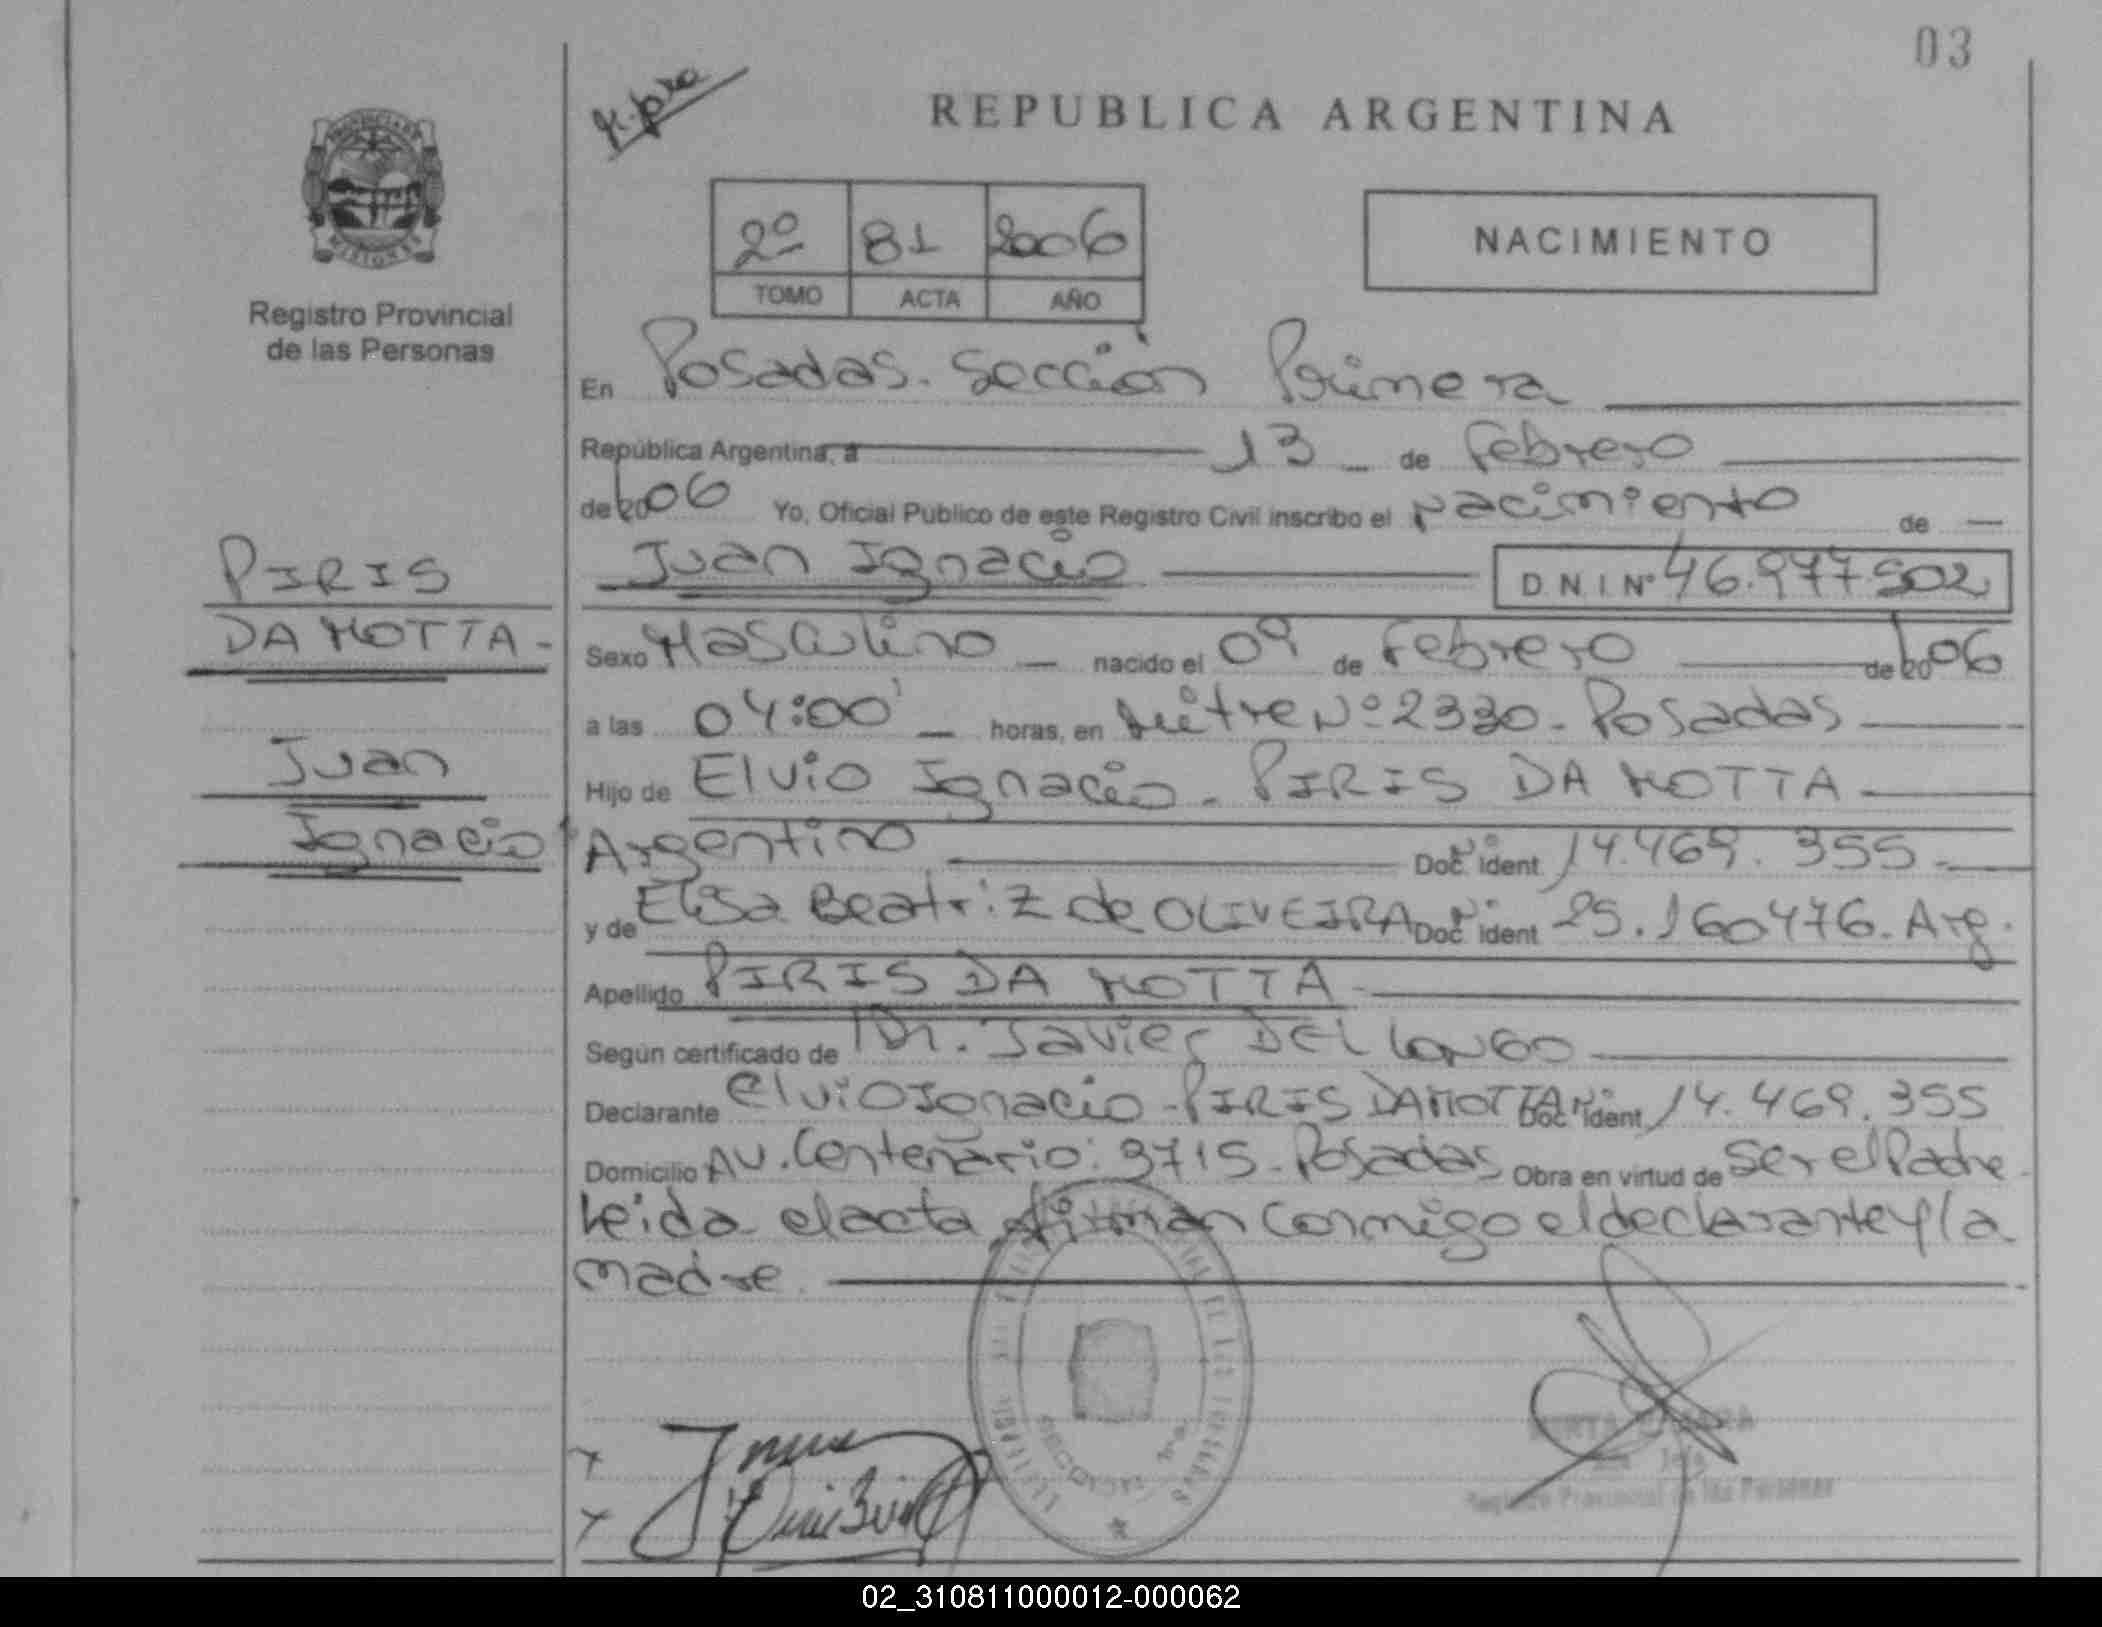 03
K. pra
REPUBLICA ARGENTINA
PROVINCIA DE
MISIONES
2º 81 2006
TOMO ACTA AÑO
NACIMIENTO
Registro Provincial
de las Personas
En Posadas. Sección Primera
República Argentina, a 13 de Febrero
de 2006 Yo, Oficial Público de este Registro Civil inscribo el nacimiento de
Juan Ignacio D.N.I Nº 46.977.502
PIRIS
DA MOTTA -
Juan
Ignacio
Sexo Masculino nacido el 09 de Febrero de 2006
a las 04:00' horas, en Mitre Nº 2330 - Posadas
Hijo de Elvio Ignacio - PIRIS DA MOTTA
Argentino Doc. ident 14.469.355 -
y de Elisa Beatriz de OLIVEIRA Doc. ident 25.160476. Arg.
Apellido PIRIS DA MOTTA
Según certificado de Dr. Javier DEL LONGO
Declarante Elvio Ignacio - PIRIS DA MOTTA Doc. ident 14.469.355
Domicilio AV. Centenario: 3715 - Posadas Obra en virtud de ser el Padre -
Leida el acta, firman conmigo el declarante y la
madre.
SECCION 1ra.
Jefe
Registro Provincial de las Personas
02_310811000012-000062